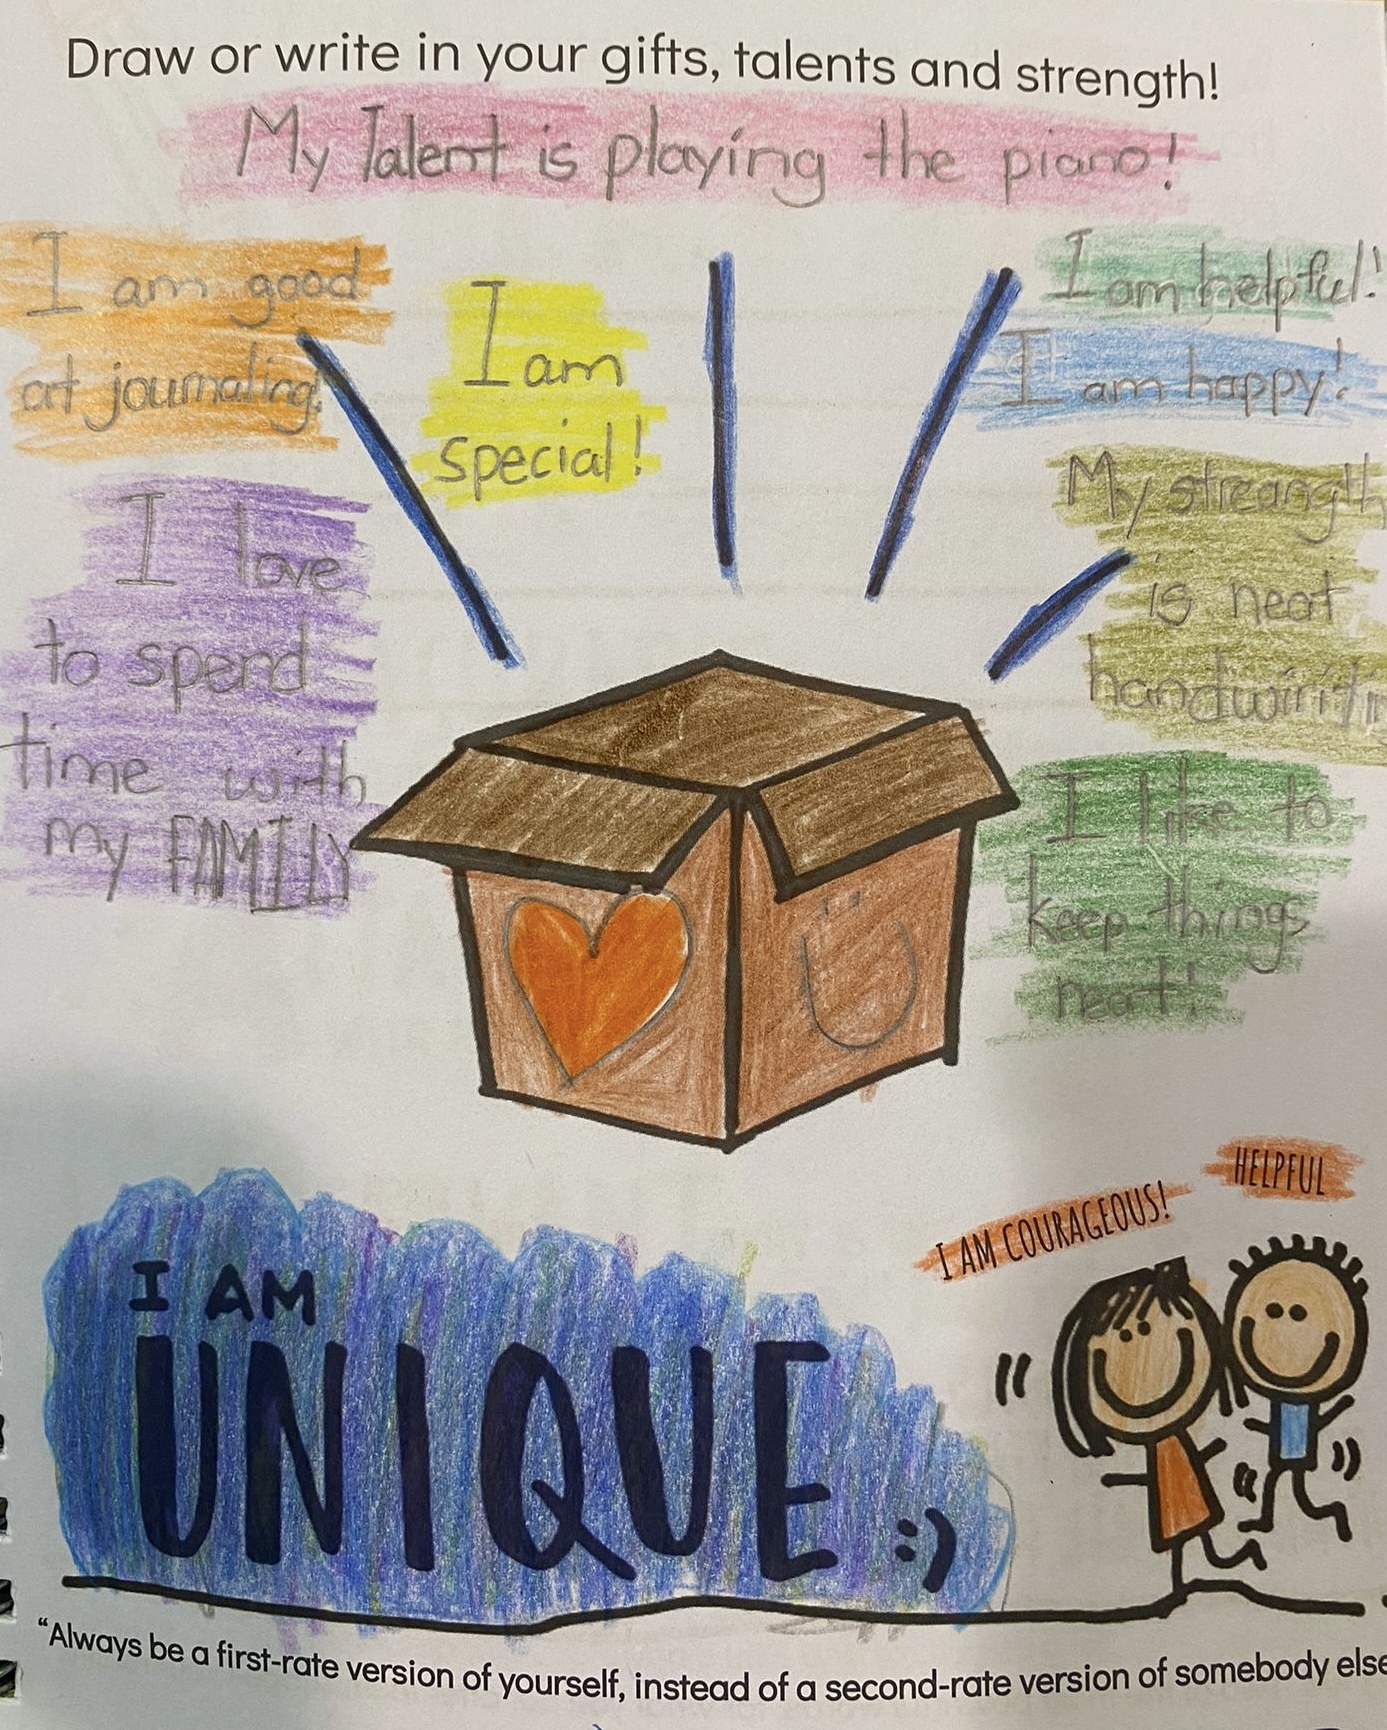 Draw or write in your gifts, talents and strength!
My Talent is playing the piano!
I am good
at journaling!
I am
special!
I am helpful!
I am happy!
I love
to spend
time with
my FAMILY
My streangth
is neat
handwirit
I like to
keep things
neat!
I AM COURAGEOUS!
HELPFUL
I AM
UNIQUE :)
“Always be a first-rate version of yourself, instead of a second-rate version of somebody else